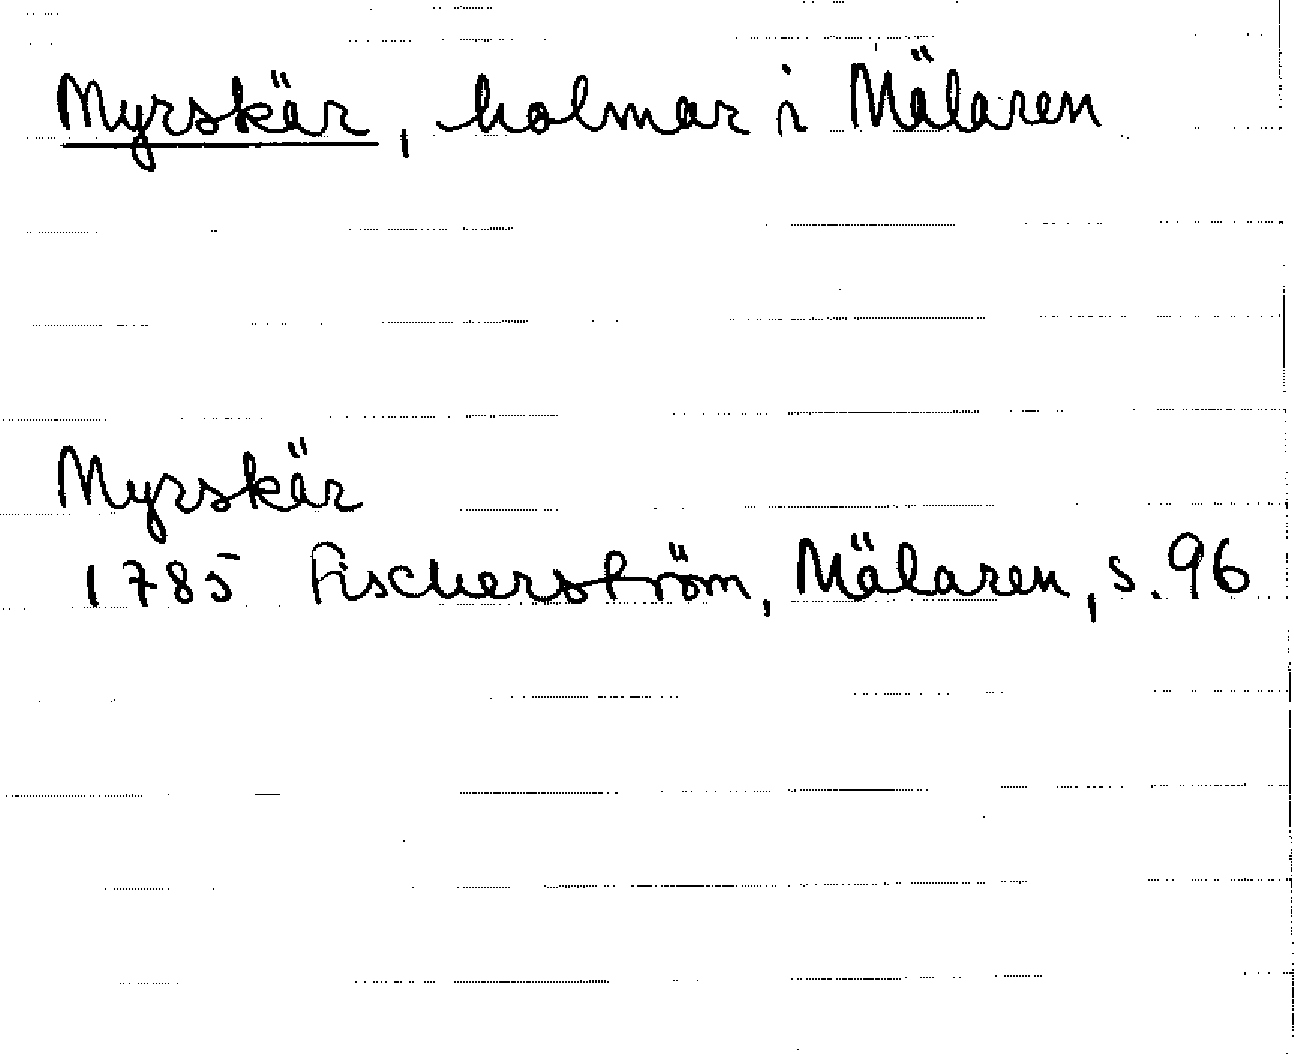 Myrskär, holmar i Mälaren
Myrskär
1785 Fischerström, Mälaren, s. 96